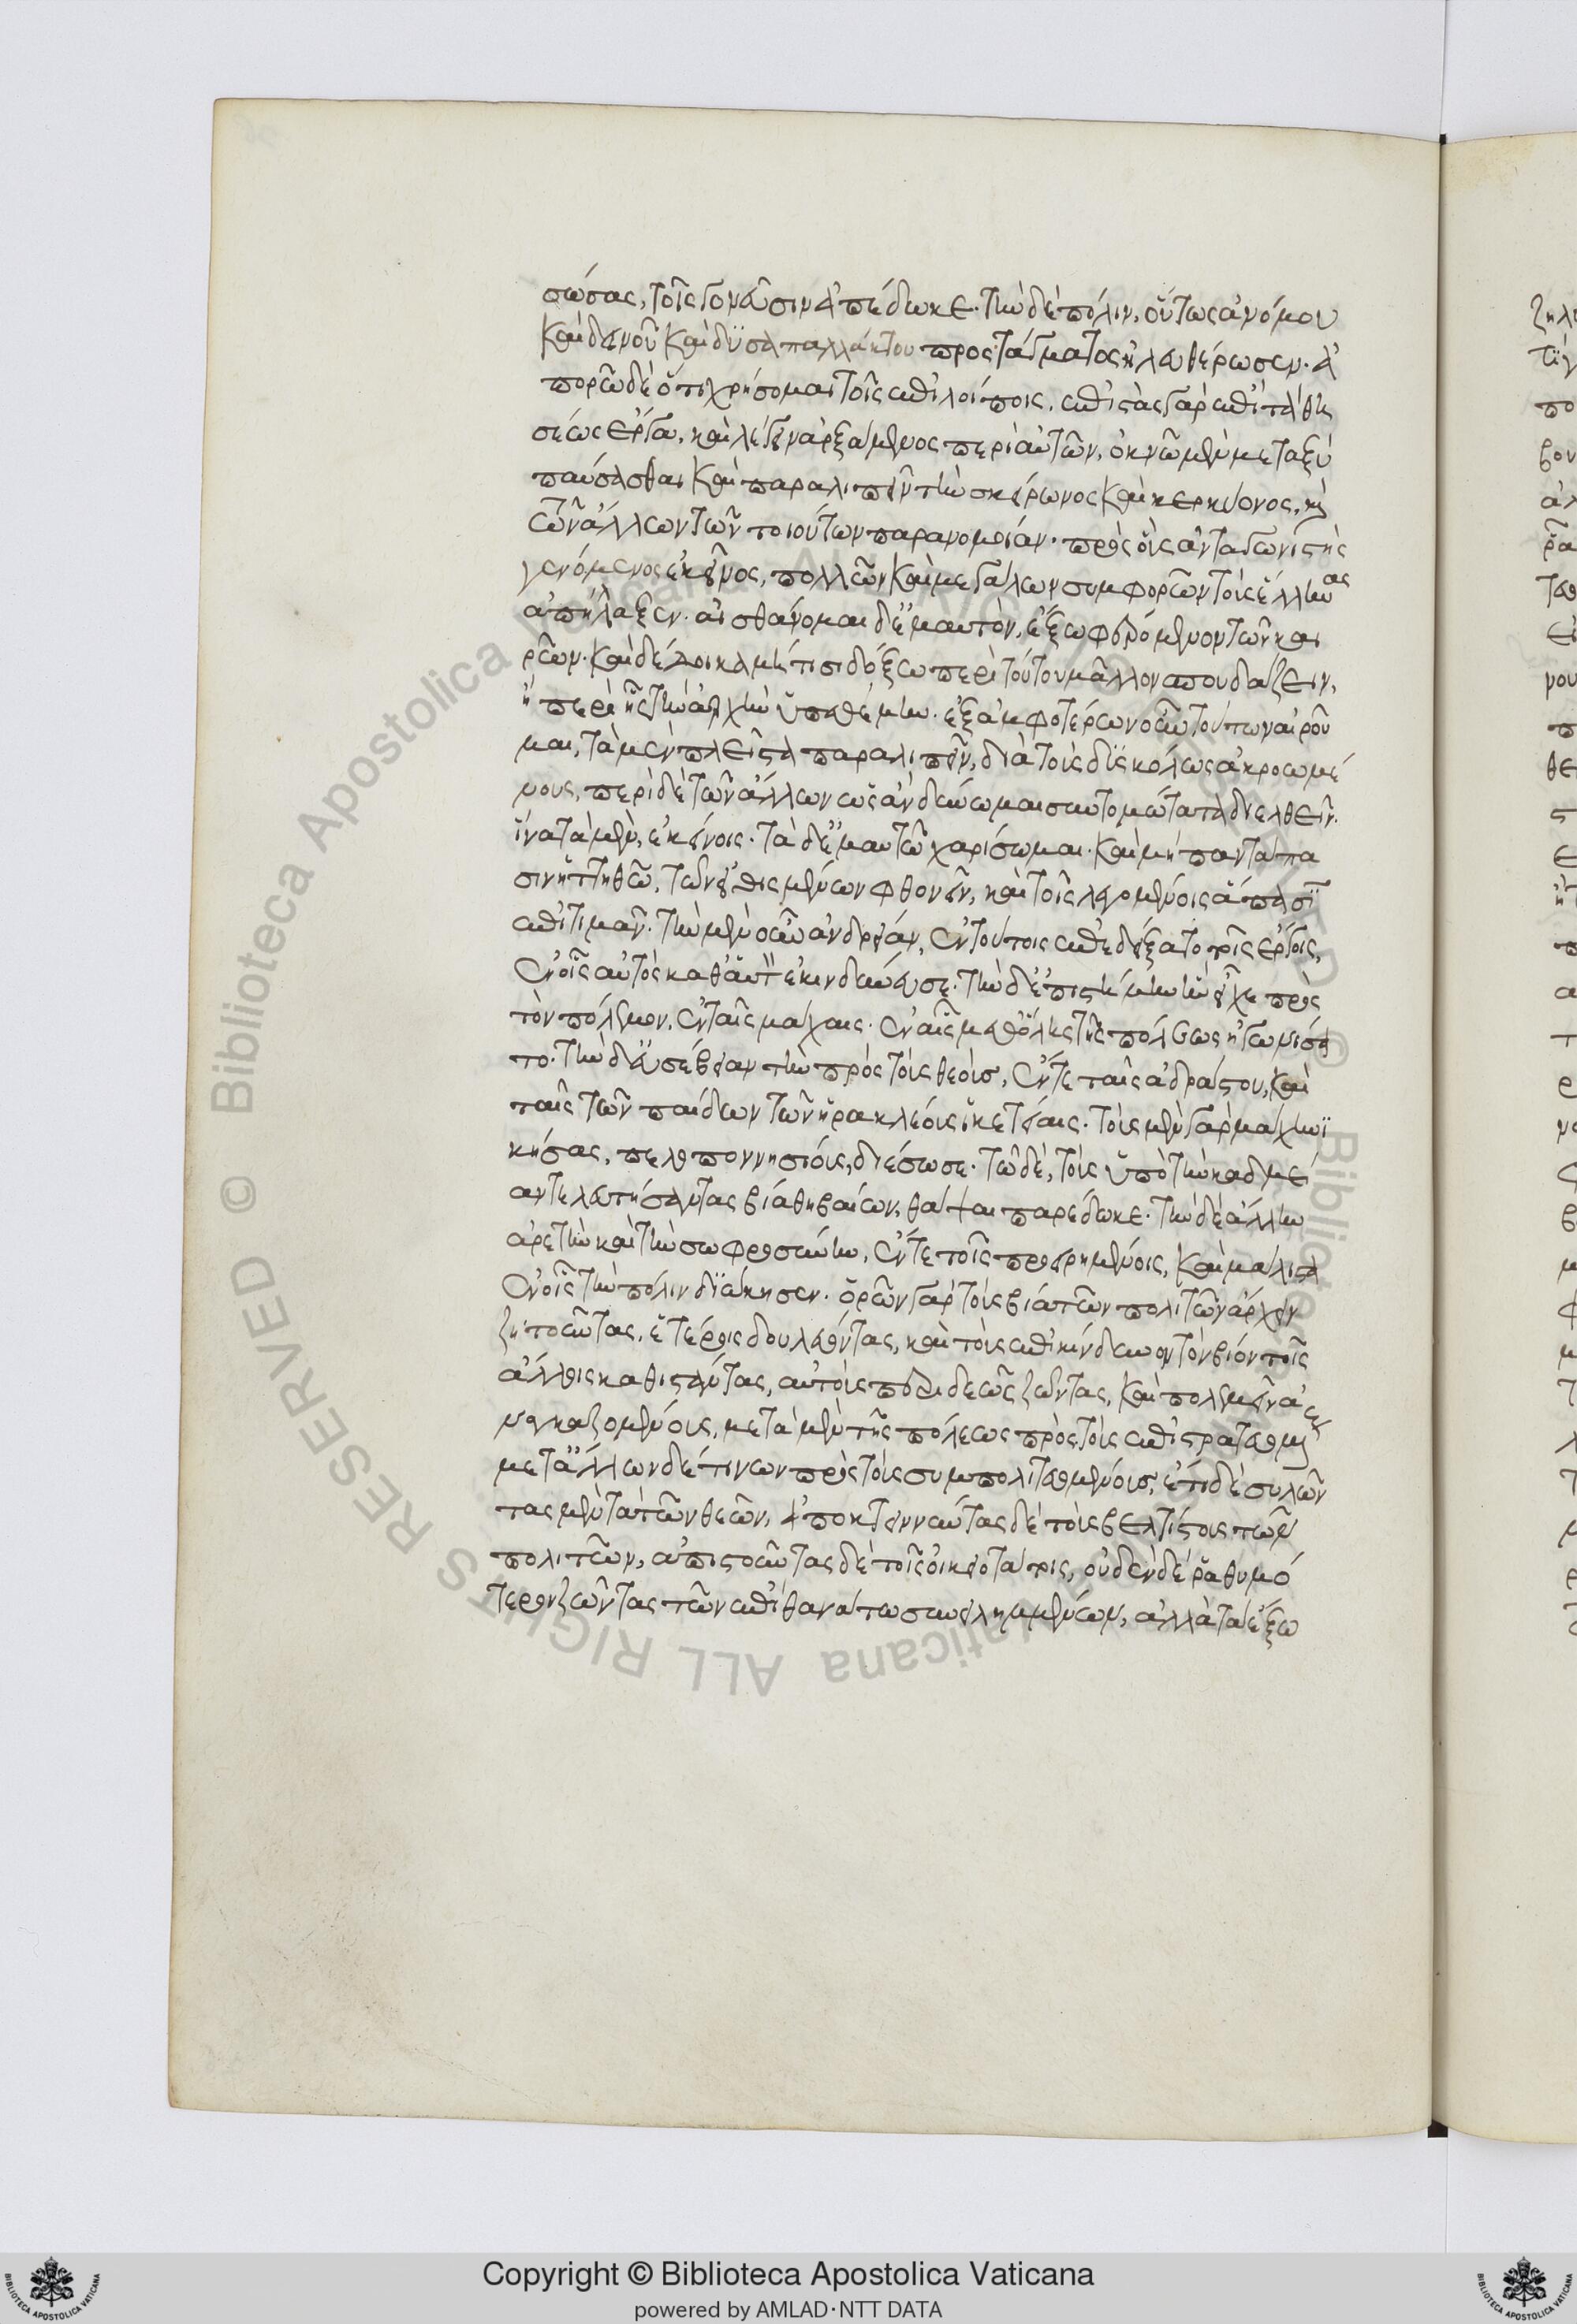 σώσας, τοῖς γονεῦσιν ἀπέδωκε· τὴν δὲ πόλιν, οὕτως ἀνόμου
καὶ δεινοῦ καὶ δυσαπαλλάκτου προστάγματος ἠλευθέρωσεν· ἀ
πορῶ δὲ ὅ τι χρήσομαι τοῖς ἐπιλοίποις. ἐπιστὰς γὰρ ἐπὶ τὰ θη
σέως ἔργα, καὶ λέγειν ἀρξάμενος περὶ αὐτῶν, ὀκνῶ μὲν μεταξὺ
παύσασθαι καὶ παραλιπεῖν τὴν σκείρωνος καὶ κερκυόνος, κ
τῶν ἄλλων τῶν τοιούτων παρανομίαν· πρὸς οὓς ἀνταγωνιστὴς
γενόμενος ἐκεῖνος, πολλῶν καὶ μεγάλων συμφορῶν τοὺς ἕλληνας
ἀπήλαξεν· αἰσθάνομαι δ' ἐμαυτὸν, ἔξω φερόμενον τῶν και
ρῶν· καὶ δέδοικα μή τισι δόξω περὶ τούτου μᾶλλον σπουδάζειν,
ἢ περὶ ἧς τὴν ἀρχὴν ὑπεθέμην· ἐξ ἀμφοτέρων οὖν τούτων αἱροῦ
μαι, τὰ μὲν πλεῖστα παραλιπεῖν, διὰ τοὺς δυσκόλως ἀκροωμέ
νους, περὶ δὲ τῶν ἄλλων ὡς ἂν δύνωμαι συντομώτατα διελθεῖν·
ἵνα τὰ μὲν, ἐκείνοις· τὰ δ' ἐμαυτῷ χαρίσωμαι· καὶ μὴ παντάπα
σιν ἡττηθῶ, τῶν εἰθισμένων φθονεῖν, καὶ τοῖς λεγομένοις ἅπασιν
ἐπιτιμᾶν· τὴν μὲν οὖν ἀνδρείαν, ἐν τούτοις ἐπεδείξατο τοῖς ἔργοις,
ἐν οἷς αὐτὸς καθ' αὑτὸν ἐκινδύνευσε· τὴν δ' ἐπιστήμην ἣν εἶχε πρὸς
τὸν πόλεμον, ἐν ταῖς μάχαις· ἐν αἷς μεθ' ὅλης τῆς πόλεως ἠγωνίσα
το· τὴν δ' εὐσέβειαν τὴν πρὸς τοὺς θεοὺς, ἔν τε ταῖς ἀδράστου, καὶ
ταῖς τῶν παίδων τῶν ἡρακλέους ἱκετείαις· τοὺς μὲν γὰρ μάχῃ νι
κήσας, πελοποννησίους, διέσωσε· τῷ δὲ, τοὺς ὑπὸ τὴν καδμεί
αν τελευτήσαντας βίᾳ θηβαίων, θάψαι παρέδωκε· τὴν δὲ ἄλλην
ἀρετὴν καὶ τὴν σωφροσύνην, ἔν τε τοῖς προειρημένοις, καὶ μάλιστα
ἐν οἷς τὴν πόλιν διῴκησεν· ὁρῶν γὰρ τοὺς βίᾳ τῶν πολιτῶν ἄρχειν
ζητοῦντας, ἑτέροις δουλεύοντας, καὶ τοὺς ἐπικίνδυνον τὸν βίον τοῖς
ἄλλοις καθιστάντας, αὐτοὺς περιδεῶς ζῶντας, καὶ πολεμεῖν ἀ
ναγκαζομένους, μετὰ μὲν τῆς πόλεως πρὸς τοὺς ἐπιστρατευομένους
μετ' ἄλλων δέ τινων πρὸς τοὺς συμπολιτευομένους, ἔτι δὲ συλῶν
τας μὲν τὰ τῶν θεῶν, ἀποκτειννύντας δὲ τοὺς βελτίστους τῶν
πολιτῶν, ἀπιστοῦντας δὲ τοῖς οἰκειοτάτοις, οὐδὲν δὲ ῥᾳθυμό
τερον ζῶντας τῶν ἐπὶ θανάτῳ συνειλημμένων, ἀλλὰ τὰ ἔξω
Copyright © Biblioteca Apostolica Vaticana
powered by AMLAD·NTT DATA